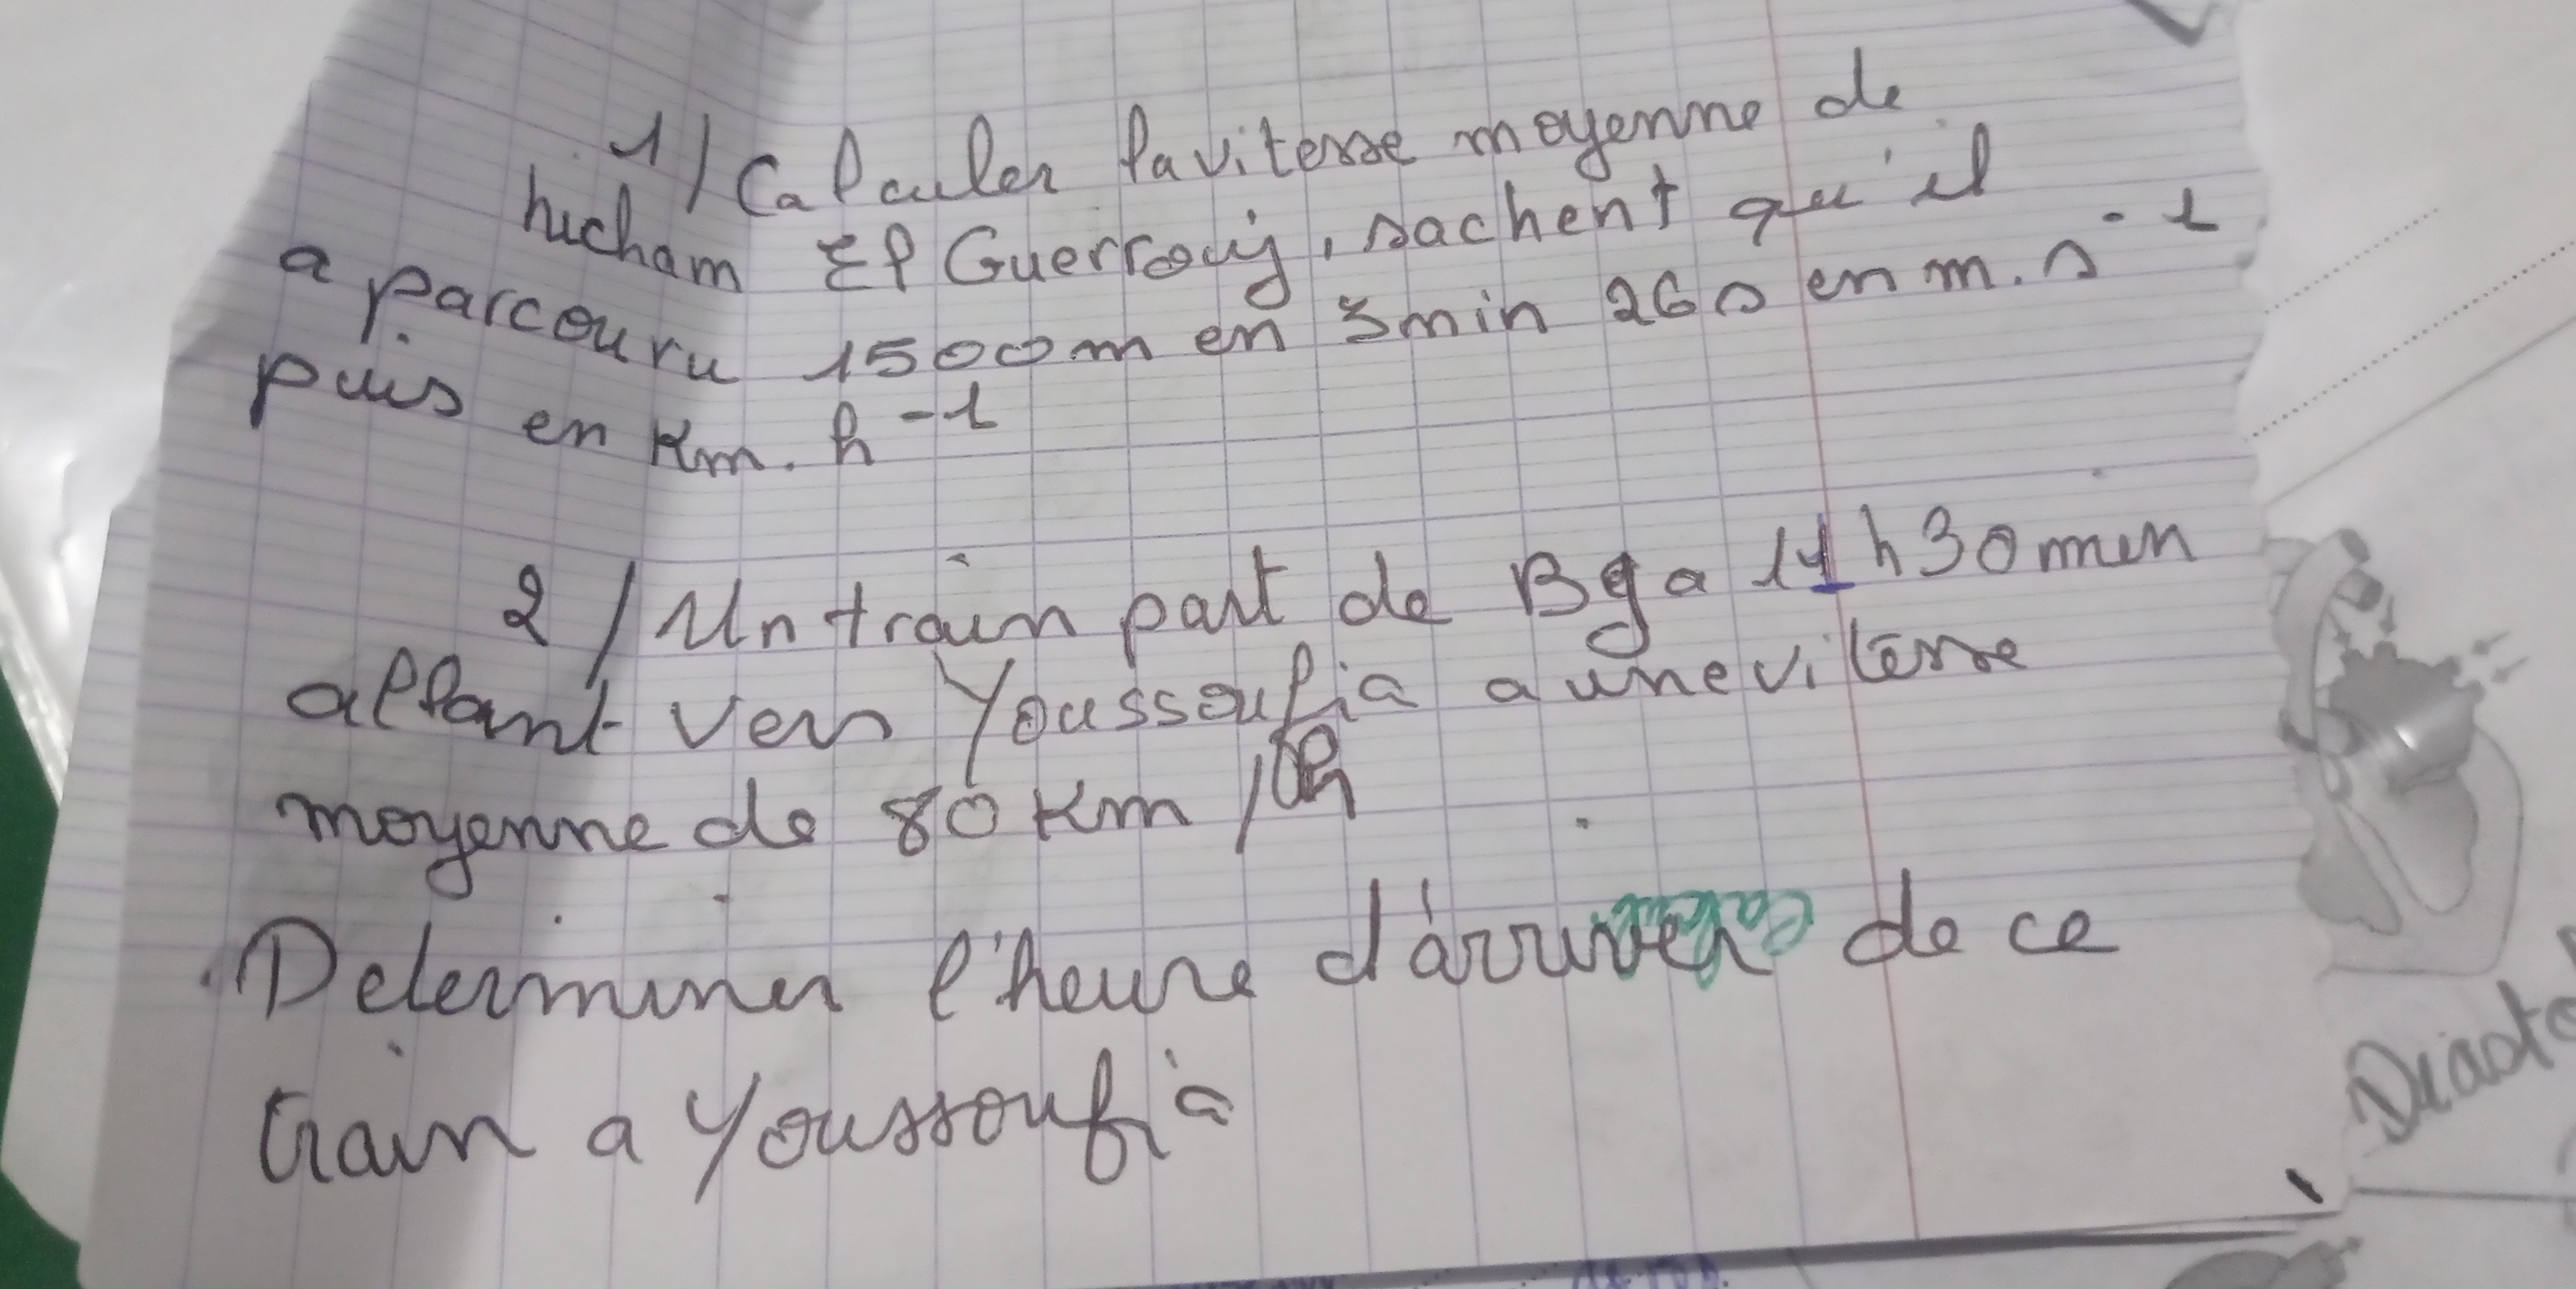 1/ Calculer la vitesse moyenne de
hicham El Guerrouj, sachent qu'il
a parcouru 1500m en 3min 26s en m.s-1
puis en Km.h-1
2/ Un train part de Bg a 11h30min
allant vers Youssoufia a une vitesse
moyenne de 80 Km/h
Determiner l'heure d'arriver de ce
train a Youssoufia